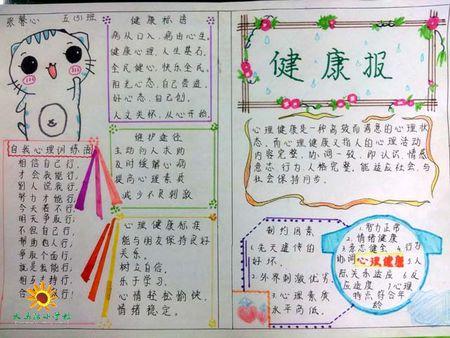 张馨心 五(5)班
健康标语
病从口入,病由心生。
健康心理,人生基石。
全民健心,快乐全民。
阳光心态,自己营造,
好心态,自己创。
人文关怀,从心开始。
自我心理训练法
相信自己行,
才会我能行。
别人说我行,
努力才能行。
今天若不行,
明天争取行。
不但自己行,
帮助他人行,
争取个个行,
维护途径
主动向人求助
及时缓解心病
提高心理素质
减少不良刺激
心理健康标准
能与朋友保持良好
关系。
树立自信。
乐于学习。
心情轻松愉快,
情绪稳定。
健康报
心理健康是一种高效而满意的心理状
态,而心理健康又指人的心理活动
内容完整,协调一致,即认识、情感
意志、行为、人格完整,能适应社会,与
社会保持同步。
制约因素
1.先天遗传的
好坏。
2.外界刺激优劣
3.心理素质
水平高低。
1.智力正常
2.情绪健康
3.意志健全
心理健康
5.人
际关系适应
反
应适度
心理
特点符合年
龄